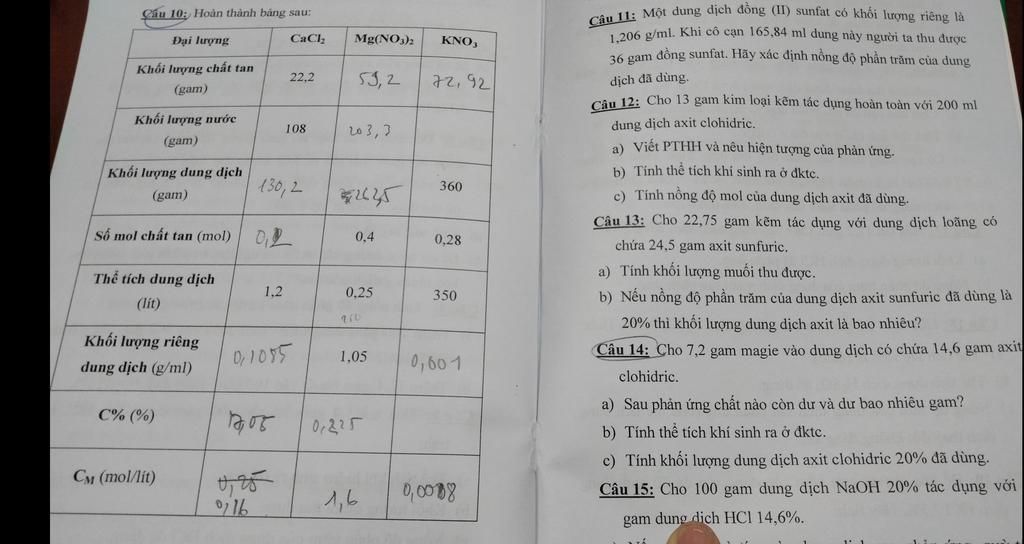 Câu 10: Hoàn thành bảng sau:
Đại lượng CaCl₂ Mg(NO₃)₂ KNO₃
Khối lượng chất tan (gam) 22,2 59,2 72,92
Khối lượng nước (gam) 108 203,3
Khối lượng dung dịch (gam) 130,2 262,5 360
Số mol chất tan (mol) 0,2 0,4 0,28
Thể tích dung dịch (lít) 1,2 0,25 350
250
Khối lượng riêng dung dịch (g/ml) 0,1085 1,05 0,001
C% (%) 17,05 0,225
C_M (mol/lít) 0,25 1,6 0,0008
0,16
Câu 11: Một dung dịch đồng (II) sunfat có khối lượng riêng là
1,206 g/ml. Khi cô cạn 165,84 ml dung này người ta thu được
36 gam đồng sunfat. Hãy xác định nồng độ phần trăm của dung
dịch đã dùng.
Câu 12: Cho 13 gam kim loại kẽm tác dụng hoàn toàn với 200 ml
dung dịch axit clohidric.
a) Viết PTHH và nêu hiện tượng của phản ứng.
b) Tính thể tích khí sinh ra ở đktc.
c) Tính nồng độ mol của dung dịch axit đã dùng.
Câu 13: Cho 22,75 gam kẽm tác dụng với dung dịch loãng có
chứa 24,5 gam axit sunfuric.
a) Tính khối lượng muối thu được.
b) Nếu nồng độ phần trăm của dung dịch axit sunfuric đã dùng là
20% thì khối lượng dung dịch axit là bao nhiêu?
Câu 14: Cho 7,2 gam magie vào dung dịch có chứa 14,6 gam axit
clohidric.
a) Sau phản ứng chất nào còn dư và dư bao nhiêu gam?
b) Tính thể tích khí sinh ra ở đktc.
c) Tính khối lượng dung dịch axit clohidric 20% đã dùng.
Câu 15: Cho 100 gam dung dịch NaOH 20% tác dụng với
gam dung dịch HCl 14,6%.